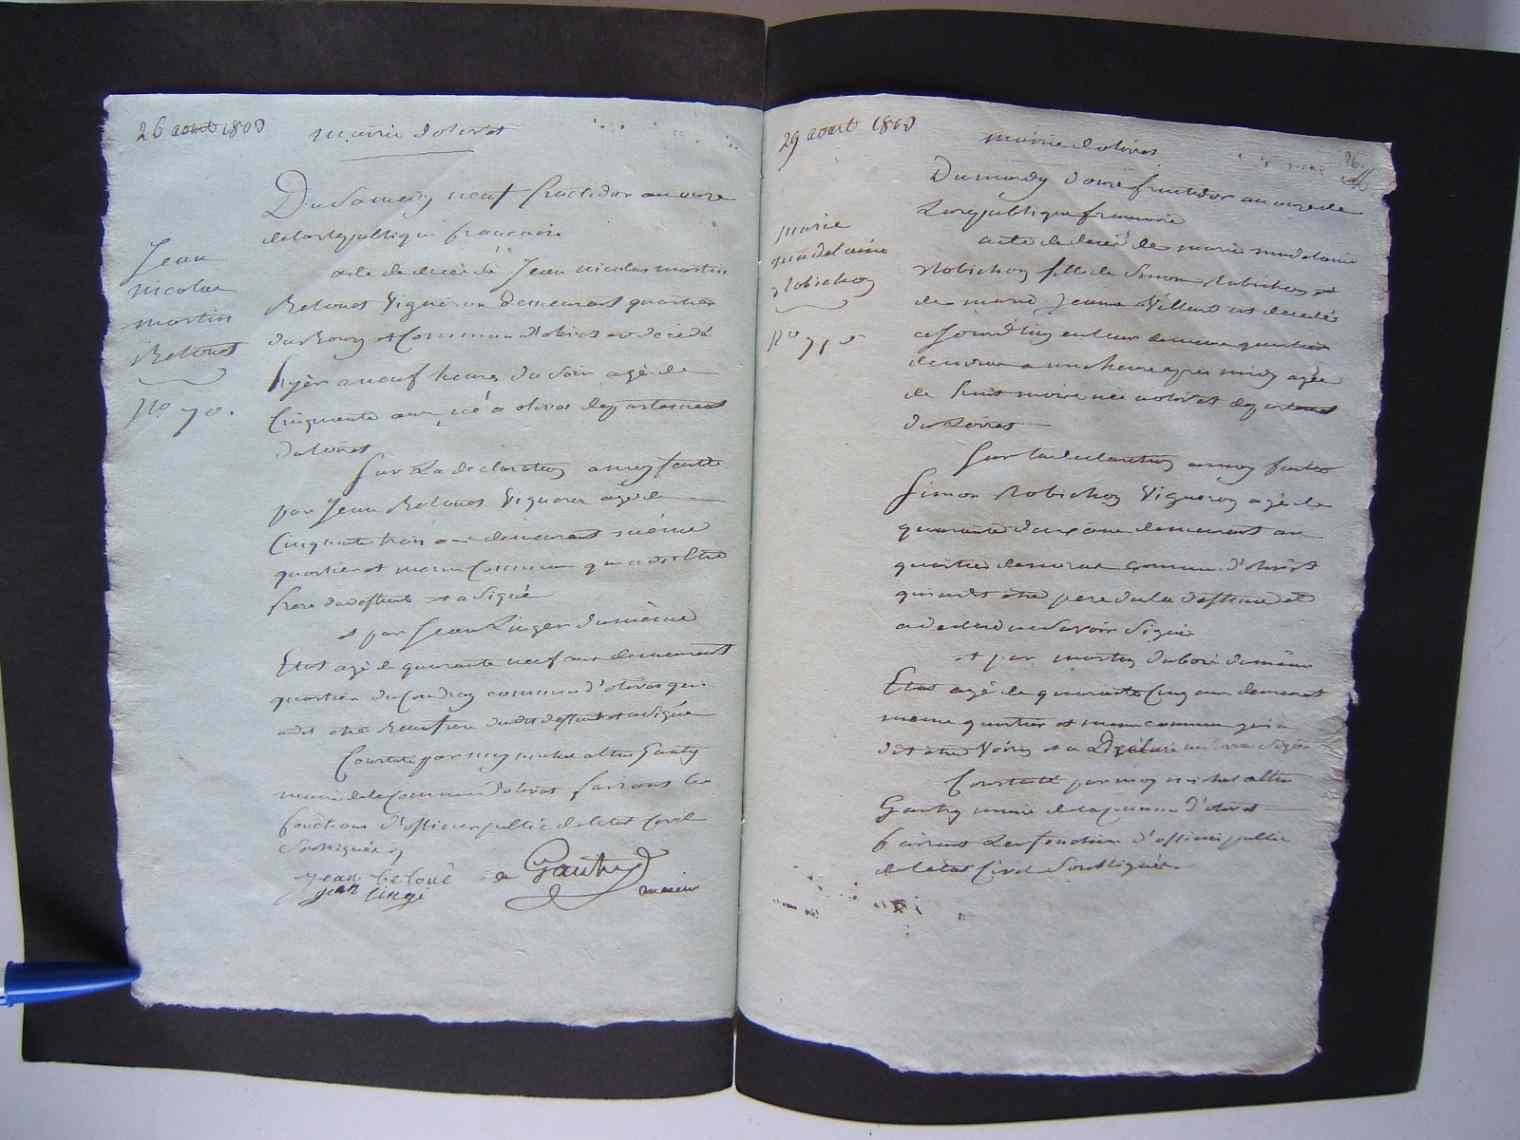 26 aout 1803
mairie d'olivet
Du Samedy neuf fructidor an onze
de la republique francaise
Jean
nicolas
martin
Belouet
No 70.
acte de decè de Jean nicolas martin
Belouet Vigneron demeurant quartier
du Bourg et Commune d'olivet decedé
hyèr a neuf heures du Soir agé de
Cinquante ans, né a olivet departement
du loiret
Sur La declaration a moy faitte
par Jean Belouet Vigneron agé de
Cinquante trois ans demeurant mème
quartier et meme Commune qui a dit Etre
frere du deffunt et a Signé
et par Jean Linger du mème
Etat agé de quarante neuf ans demeurant
quartier du Coudray commune d'olivet qui
a dit etre Beaufrere du dit deffunt et a Signé
Constaté par moy michel altin Gautry
maire de la Commune d'olivet faisant les
fonctions d'officier public de letat Civil
Soussigné
jean belouè
jean lingé
Gautry
maire
29 aout 1803
mairie d'olivet
Du mardy douze fructidor an onze de
La republique francaise
marie
madelaine
Robichon
No 71
acte de decè de marie madelaine
Robichon fille de Simon Robichon et
de marie Jeanne Villeret decedée
cejourd'huy en leur demeure quartier
a une heure apres midy agée
de huit mois née a olivet departement
du Loiret
Sur la declaration a moy faitte
Simon Robichon Vigneron agé de
quarante deux ans demeurant au
quartier commune d'olivet
qui a dit etre pere de la deffunte et
a declaré ne Savoir Signé
et par martin dubois du mème
Etat agé de quarante Cinq ans demeurant
meme quartier et meme commune qui a
dit etre Voisin et a Declaré ne Savoir Signé
Constaté par moy michel altin
Gautry maire de la commune d'olivet
faisant Les fonctions d'officier public
de letat Civil Soussigné